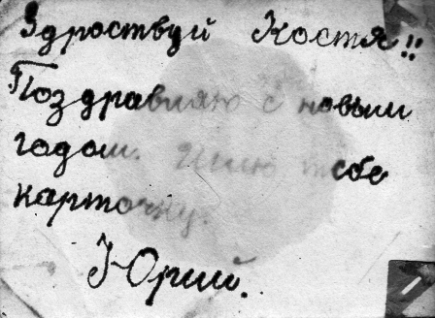 Здроствуй Костя!!
Поздравляю с новым
годом. Шлю тебе
карточку.
Юрий.